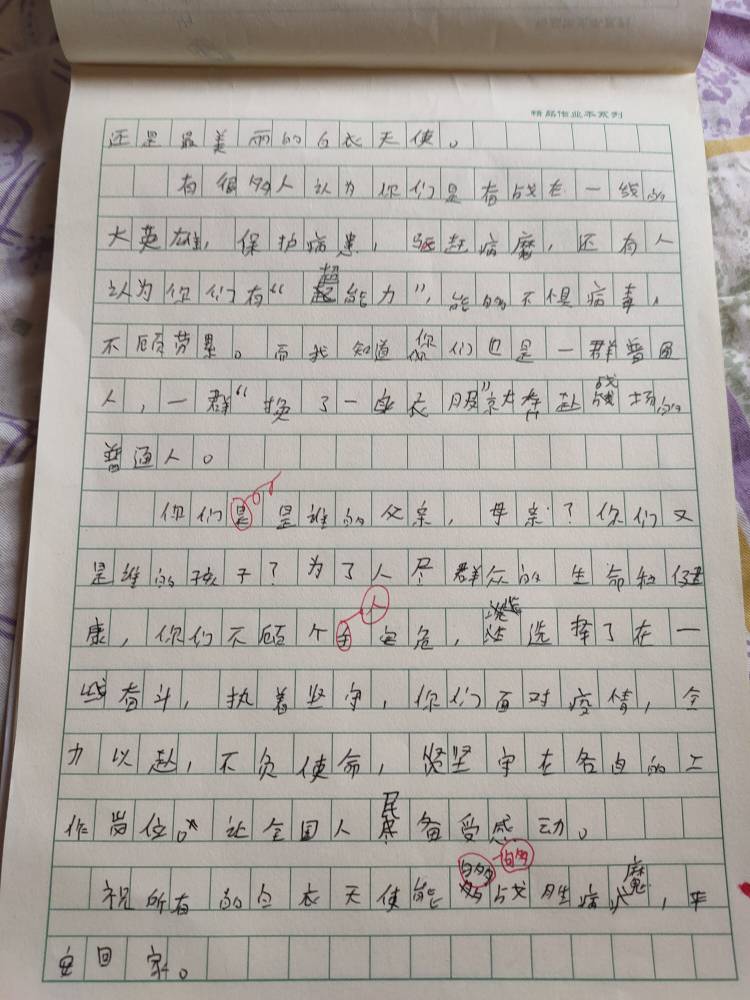 精品作业本系列
还是最美丽的白衣天使。
有很多人认为你们是奋战在一线的
大英雄，保护病患，驱赶病魔，还有人
认为你们有“超能力”，能够不惧病毒，
不顾劳累。而我知道你们也是一群普通
人，一群“换了一身衣服”就奔赴战场的
普通人。
你们是是谁的父亲，母亲？你们又
是谁的孩子？为了人民群众的生命和健
康，你们不顾个人安危，选择了在一
线奋斗，执着坚守，你们面对疫情，全
力以赴，不负使命，坚守在各自的工
作岗位。让全国人民备受感动。
祝所有的白衣天使能够战胜病魔，平
安回家。